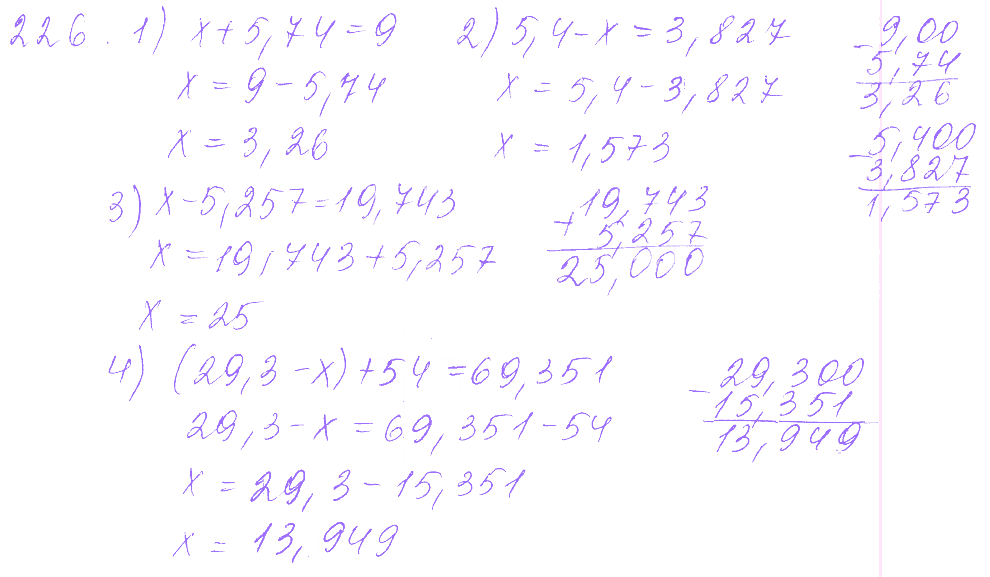 226. 1) x+5,74=9   2) 5,4-x=3,827
x=9-5,74   x=5,4-3,827
x=3,26   x=1,573
-9,00
5,74
3,26
-5,400
3,827
1,573
3) x-5,257=19,743
x=19,743+5,257
x=25
19,743
+5,257
25,000
4) (29,3-x)+54=69,351
29,3-x=69,351-54
x=29,3-15,351
x=13,949
-29,300
15,351
13,949